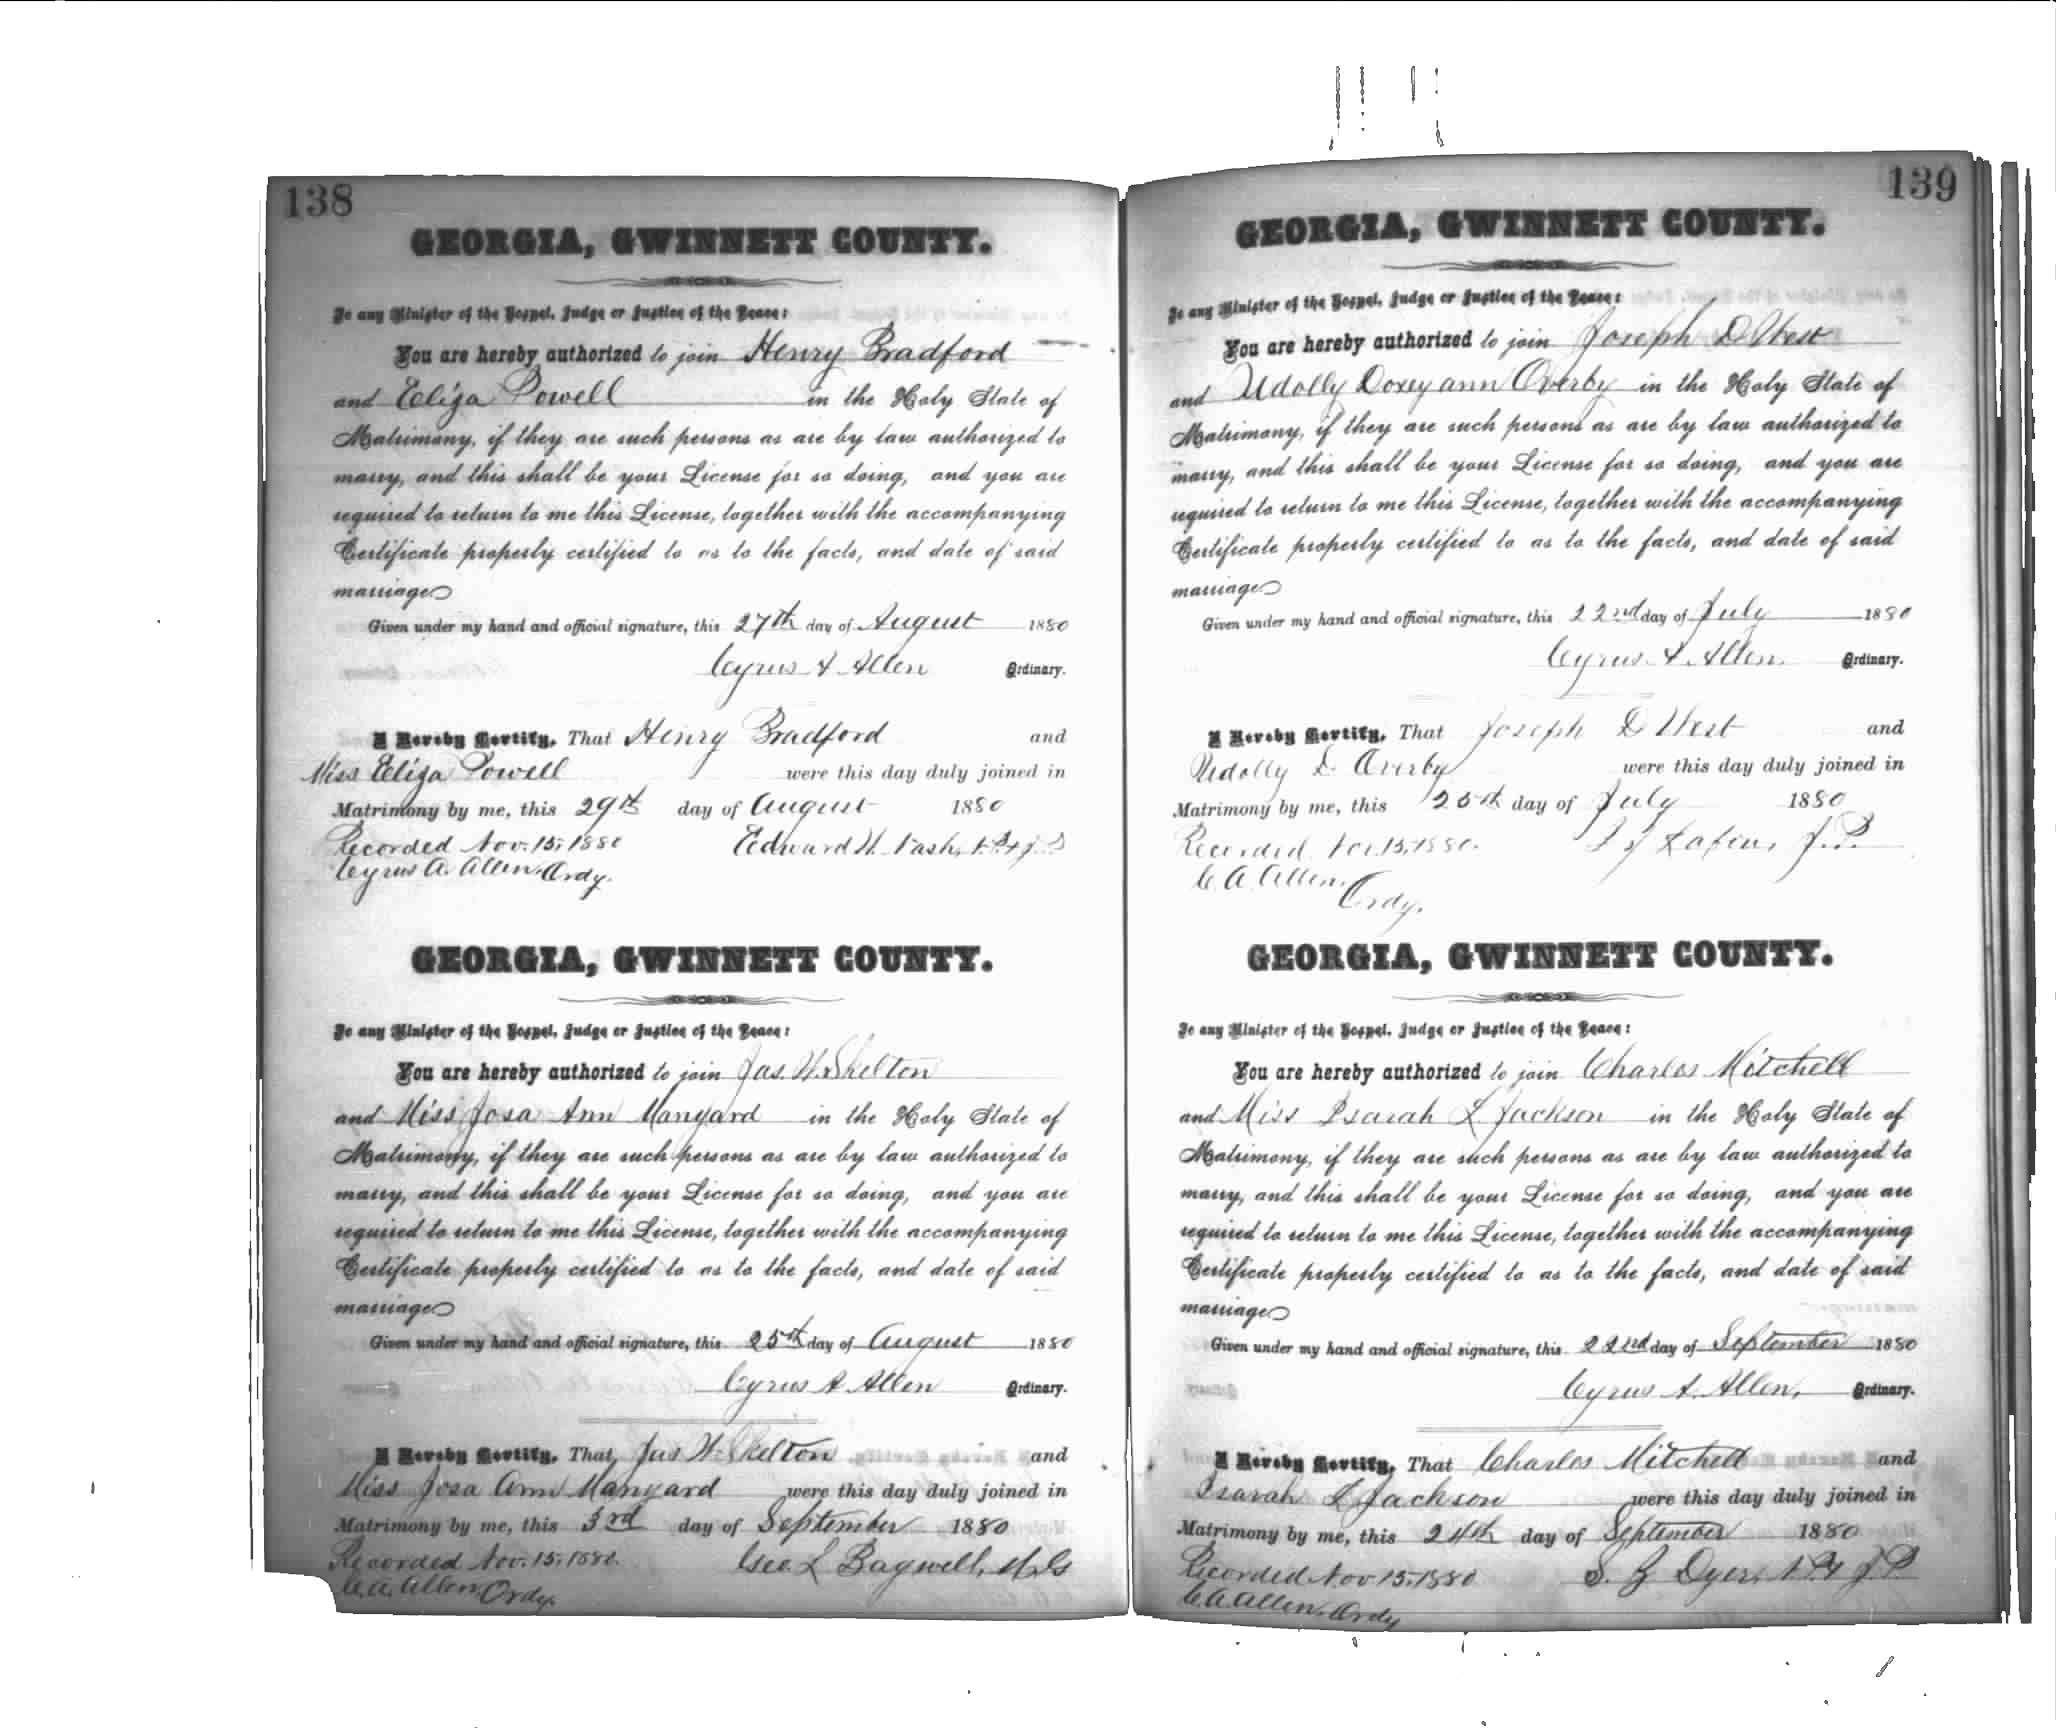 138
GEORGIA, GWINNETT COUNTY.
To any Minister of the Gospel, Judge or Justice of the Peace:
You are hereby authorized to join Henry Bradford
and Eliza Powell in the Holy State of
Matrimony, if they are such persons as are by law authorized to
marry, and this shall be your License for so doing, and you are
required to return to me this License, together with the accompanying
Certificate properly certified to as to the facts, and date of said
marriage
Given under my hand and official signature, this 27th day of August 1880
Cyrus A Allen Ordinary.
I Hereby Certify, That Henry Bradford and
Miss Eliza Powell were this day duly joined in
Matrimony by me, this 29th day of August 1880
Recorded Nov. 15, 1880 Edward W. Nash, N.P. & J.P.
Cyrus A. Allen, Ordy.
GEORGIA, GWINNETT COUNTY.
To any Minister of the Gospel, Judge or Justice of the Peace:
You are hereby authorized to join Jas. W. Skelton
and Miss Josa Ann Manyard in the Holy State of
Matrimony, if they are such persons as are by law authorized to
marry, and this shall be your License for so doing, and you are
required to return to me this License, together with the accompanying
Certificate properly certified to as to the facts, and date of said
marriage
Given under my hand and official signature, this 25th day of August 1880
Cyrus A Allen Ordinary.
I Hereby Certify, That Jas W. Skelton and
Miss Josa Ann Manyard were this day duly joined in
Matrimony by me, this 3rd day of September 1880
Recorded Nov. 15, 1880. Geo. L Bagwell, M.G
C.A. Allen, Ordy.
139
GEORGIA, GWINNETT COUNTY.
To any Minister of the Gospel, Judge or Justice of the Peace:
You are hereby authorized to join Joseph D. West
and Udolly Doxey ann Overby in the Holy State of
Matrimony, if they are such persons as are by law authorized to
marry, and this shall be your License for so doing, and you are
required to return to me this License, together with the accompanying
Certificate properly certified to as to the facts, and date of said
marriage
Given under my hand and official signature, this 22nd day of July 1880
Cyrus A. Allen. Ordinary.
I Hereby Certify, That Joseph D West and
Udolly D. Overby were this day duly joined in
Matrimony by me, this 25th day of July 1880
Recorded Nov. 15, 1880. J.P.
C. A. Allen.
Ordy.
GEORGIA, GWINNETT COUNTY.
To any Minister of the Gospel, Judge or Justice of the Peace:
You are hereby authorized to join Charles Mitchell
and Miss Psarah L. Jackson in the Holy State of
Matrimony, if they are such persons as are by law authorized to
marry, and this shall be your License for so doing, and you are
required to return to me this License, together with the accompanying
Certificate properly certified to as to the facts, and date of said
marriage
Given under my hand and official signature, this 22nd day of September 1880
Cyrus A. Allen, Ordinary.
I Hereby Certify, That Charles Mitchell and
Psarah L Jackson were this day duly joined in
Matrimony by me, this 24th day of September 1880
Recorded Nov 15, 1880 S. G Dyer, N.P. & J.P.
C.A. Allen, Ordy